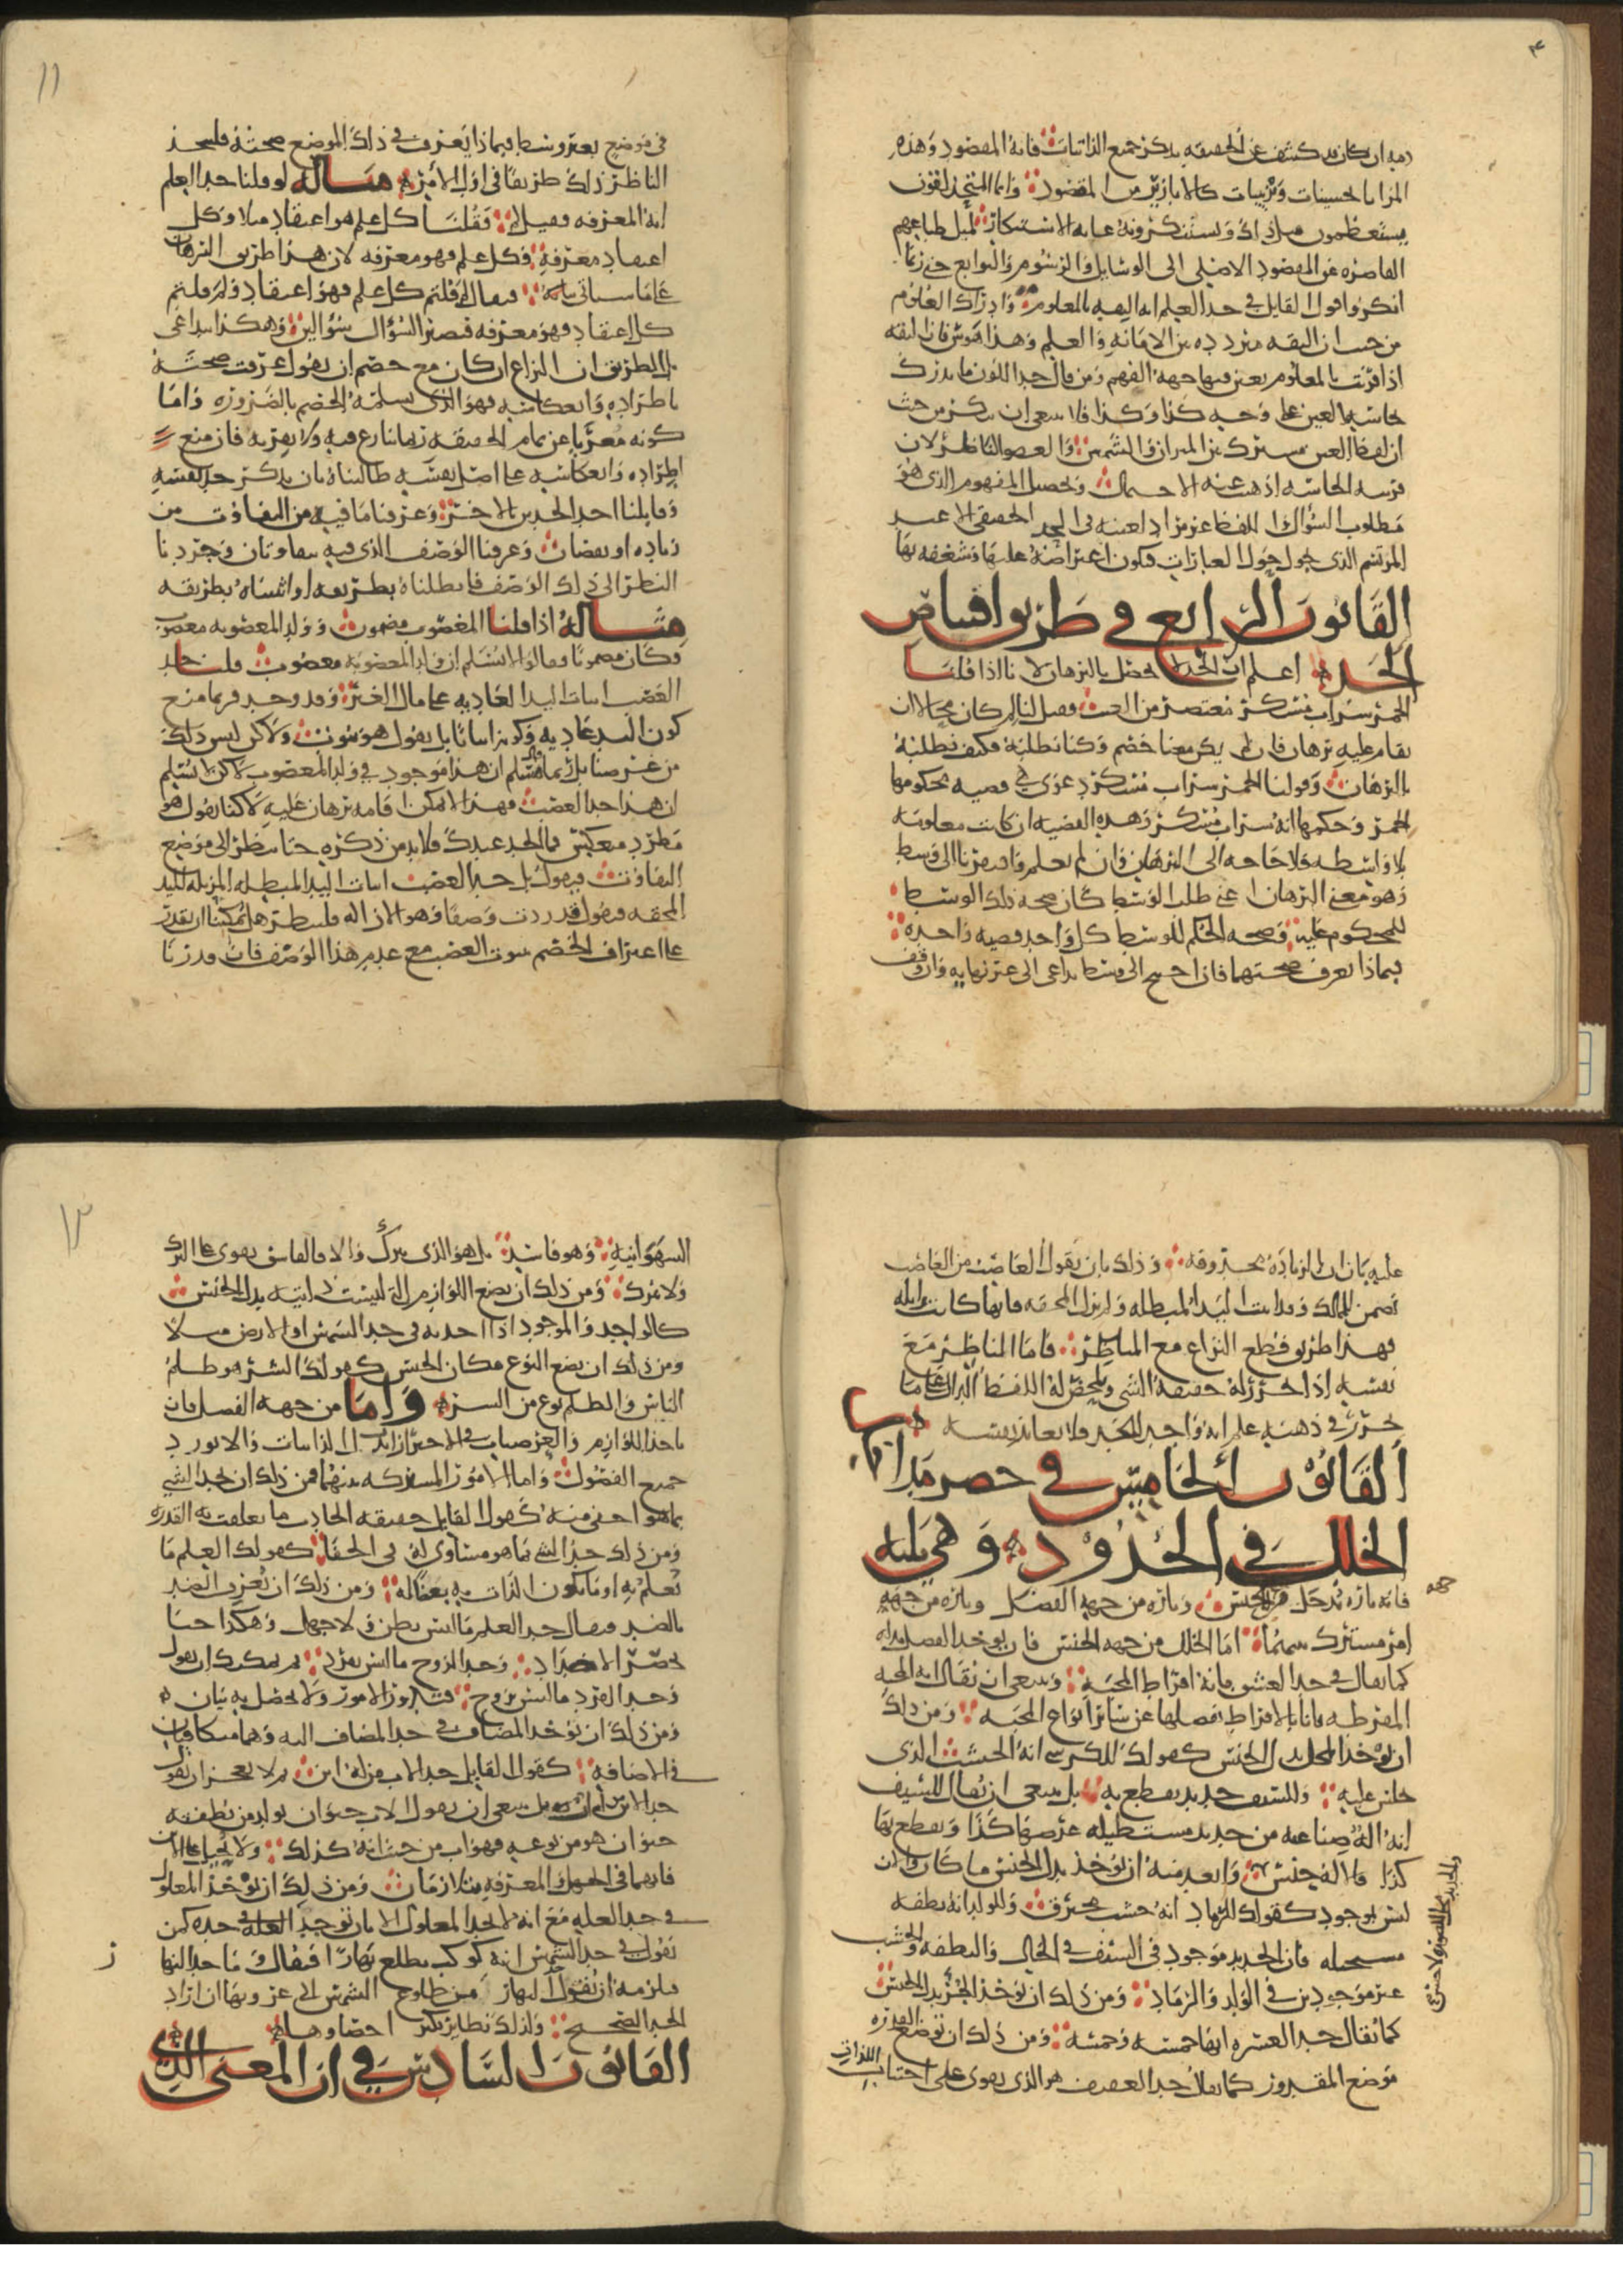 فيه ان كان قد كشف عن الحقيقه بذكر جميع الذاتيات فانه المقصود وهذه
المزايا تحسينات وتزيينات كالابازير من المقصود وانما المتحذلقون
يستعظمون مثل ذلك ويستنكرونه غايه الاستنكار لميل طباعهم
القاصره عن المقصود الاصلي الى الوسايل والرسوم والتوابع حتى ربما
انكروا قول القايل في حد العلم انه الثقه بالمعلوم وادراك المعلوم
من حيث ان الثقه متردده بين الامانه والعلم وهذا هوس فان الثقه
اذا قرنت بالمعلوم تعين فيها جهه الفهم ومن قال حد اللون ما يدرك
بحاسه العين على وجه كذا وكذا فلا ينبغي ان ينكر من حيث
ان لفظ العين مشترك بين الميزان والشمس والعضو الناظر لان
قرينه الحاسه اذهبت عنه الاحتمال وحصل المفهوم الذي هو
مطلوب السؤال اللفظ غير مراد لعينه في الحد الحقيقي الا عند
المرتسم الذي يحول حول العبارات فيكون اعتراضه عليها وشغفه بها
القانون الرابع في طريق اقتناص
الحد اعلم ان الحد لا يحصل بالبرهان لانا اذا قلنا
الخمر شراب مسكر معتصر من العنب فقيل لنا لم كان محالا ان
يقام عليه برهان فان لم يكن معنا خصم وكنا نطلبه فكيف نطلبه
بالبرهان وقولنا الخمر شراب مسكر دعوى هي قضيه محكومها
الخمر وحكمها انه شراب مسكر وهذه القضيه ان كانت معلومه
بلا واسطه فلا حاجه الى البرهان وان لم يعلم وافتقرنا الى وسط
وهو معنى البرهان اعني طلب الوسط كان صحه ذلك الوسط
للمحكوم عليه وصحه الحكم للوسط كل واحد قضيه واحده
فبماذا يعرف صحتهما فان احتيج الى وسط تداعى الى غير نهايه وان وقف
في موضع بغير وسط فبماذا يعرف في ذلك الموضع صحته فليتخذ
الناظر ذلك طريقا في اول الامر مثاله لو قلنا حد العلم
انه المعرفه فقيل لم فقلنا كل علم هو اعتقاد مثلا وكل
اعتقاد معرفه وكل علم فهو معرفه لان هذا طريق البرهان
على ما سياتي بيانه فيقال لم قلتم كل علم فهو اعتقاد ولم قلتم
كل اعتقاد فهو معرفه فيصير السؤال سؤالين وهكذا يتداعى
بل الطريق ان النزاع ان كان مع خصم ان يقول عرفت صحته
باطراده وانعكاسه فهو الذي يسلمه الخصم بالضروره واما
كونه معربا عن تمام الحقيقه ربما ينازع فيه ولا يقر به فان منع
اطراده وانعكاسه على اصل نفسه طالبناه بان يذكر حد نفسه
وقابلنا احد الحدين بالاخر وعرفنا ما فيه من التفاوت من
زياده او نقصان وعرفنا الوصف الذي فيه يتفاوتان وجردنا
النظر الى ذلك الوصف فابطلناه بطريقه او اثبتناه بطريقه
مثاله اذا قلنا المغصوب مضمون وولد المغصوبه مغصوب
وكان مضمونا وقالوا لا نسلم ان ولد المغصوبه مغصوب قلنا حد
الغصب اثبات اليد العاديه على مال الغير وقد وجد فربما منع
كون اليد عاديه وكونه اثباتا بل يقول هو ثبوت ولاكن ليس ذلك
من غرضنا بل ربما قال نسلم ان هذا موجود في ولد المغصوب لاكن لا نسلم
ان هذا حد الغصب فهذا لا يمكن اقامه برهان عليه لاكنا نقول هو
مطرد منعكس فما الحد عندك فلا بد من ذكره حتى ننظر الى موضع
التفاوت فيقول بل حد الغصب اثبات اليد المبطله المزيله لليد
المحقه فنقول قد زدت وصفا وهو الازاله فلننظر هل يمكننا ان نقدر
على اعتراف الخصم بثبوت الغصب مع عدم هذا الوصف فان قدرنا
عليه بان ان الزياده محذوفه وذلك بان نقول الغاصب من الغاصب
يضمن للمالك وقد اثبت اليد المبطله ولم يزل المحقه فانها كانت زايله
فهذا طريق قطع النزاع مع المناظر فاما الناظر مع
نفسه اذا تحررت له حقيقه الشي وتلخص له اللفظ الدال على ما
تحرر في ذهنه علم انه واجد للحد فلا يعاند نفسه
القانون الخامس في حصر مداخل
الخلل في الحدود وهي ثلثه
فانه تاره يدخل من جهه الجنس وتاره من جهه الفصل وتاره من جهه
امر مشترك بينهما اما الخلل من جهه الجنس فان يوخذ الفصل بدله
كما يقال في حد العشق انه افراط المحبه وينبغي ان يقال انه المحبه
المفرطه فان الافراط يفصلها عن سائر انواع المحبه ومن ذلك
ان يوخذ المحل بدل الجنس كقولك للكرسي انه الخشب الذي
يجلس عليه وللسيف حديد يقطع به بل ينبغي ان يقال للسيف
انه اله صناعيه من حديد مستطيله عرضها كذا ويقطع بها
كذا فالاله جنس وابعد منه ان يوخذ بدل الجنس ما كان والان
ليس بموجود كقولك للرماد انه خشب محترق وللولد انه نطفه
مستحيله فان الحديد موجود في السيف في الحال والنطفه والخشب
غير موجودين في الولد والرماد ومن ذلك ان يوخذ الجزء بدل الجنس
كما يقال حد العشره انها خمسه وخمسه ومن ذلك ان توضع القدره
موضع المقدور كما يقال حد العفيف هو الذي يقوى على اجتناب اللذات
جهه
والحديد محل للصوره لا جنس
الشهوانيه وهو فاسد بل هو الذي يترك والا فالفاسق يقوى على الترك
ولا يترك ومن ذلك ان يضع اللوازم التي ليست ذاتيه بدل الجنس
كالواحد والموجود اذا اخذته في حد الشمس او الارض مثلا
ومن ذلك ان يضع النوع مكان الجنس كقولك الشر هو ظلم
الناس والظلم نوع من الشر واما من جهه الفصل فان
ياخذ اللوازم والعرضيات في الاحتراز بدل الذاتيات والا يورد
جميع الفصول واما الامور المشتركه بينهما فمن ذلك ان يحد الشي
بما هو اخفى منه كقول القايل حقيقه الحادث ما تعلقت به القدره
ومن ذلك حد الشي بما هو مساوي له في الخفا كقولك العلم ما
يعلم به او ما يكون الذات به عالما ومن ذلك ان يعرف الضد
بالضد فيقال حد العلم ما ليس بظن ولا جهل وهكذا حتى
يحصر الاضداد وحد الزوج ما ليس بفرد ثم يمكنك ان تقول
وحد الفرد ما ليس بزوج فيدور الامر ولا يحصل به بيان
ومن ذلك ان يوخذ المضاف في حد المضاف اليه وهما متكافيان
في الاضافه كقول القايل حد الاب من له ابن ثم لا يعجز ان يقول
حد الابن من له اب بل ينبغي ان يقول الاب حيوان تولد من نطفته
حيوان هو من نوعه فهو اب من حيث انه كذلك ولا يحيل على الابن
فانهما في الجهل والمعرفه يتلازمان ومن ذلك ان يوخذ المعلول
في حد العله مع انه لا يحد المعلول الا بان توخذ العله في حده كمن
يقول في حد الشمس انه كوكب يطلع نهارا فيقال وما حد النهار
فيلزمه ان يقول النهار من طلوع الشمس الى غروبها ان اراد
الحد الصحيح ولذلك نظاير يكثر احصاوها
القانون السادس في ان المعنى الذي